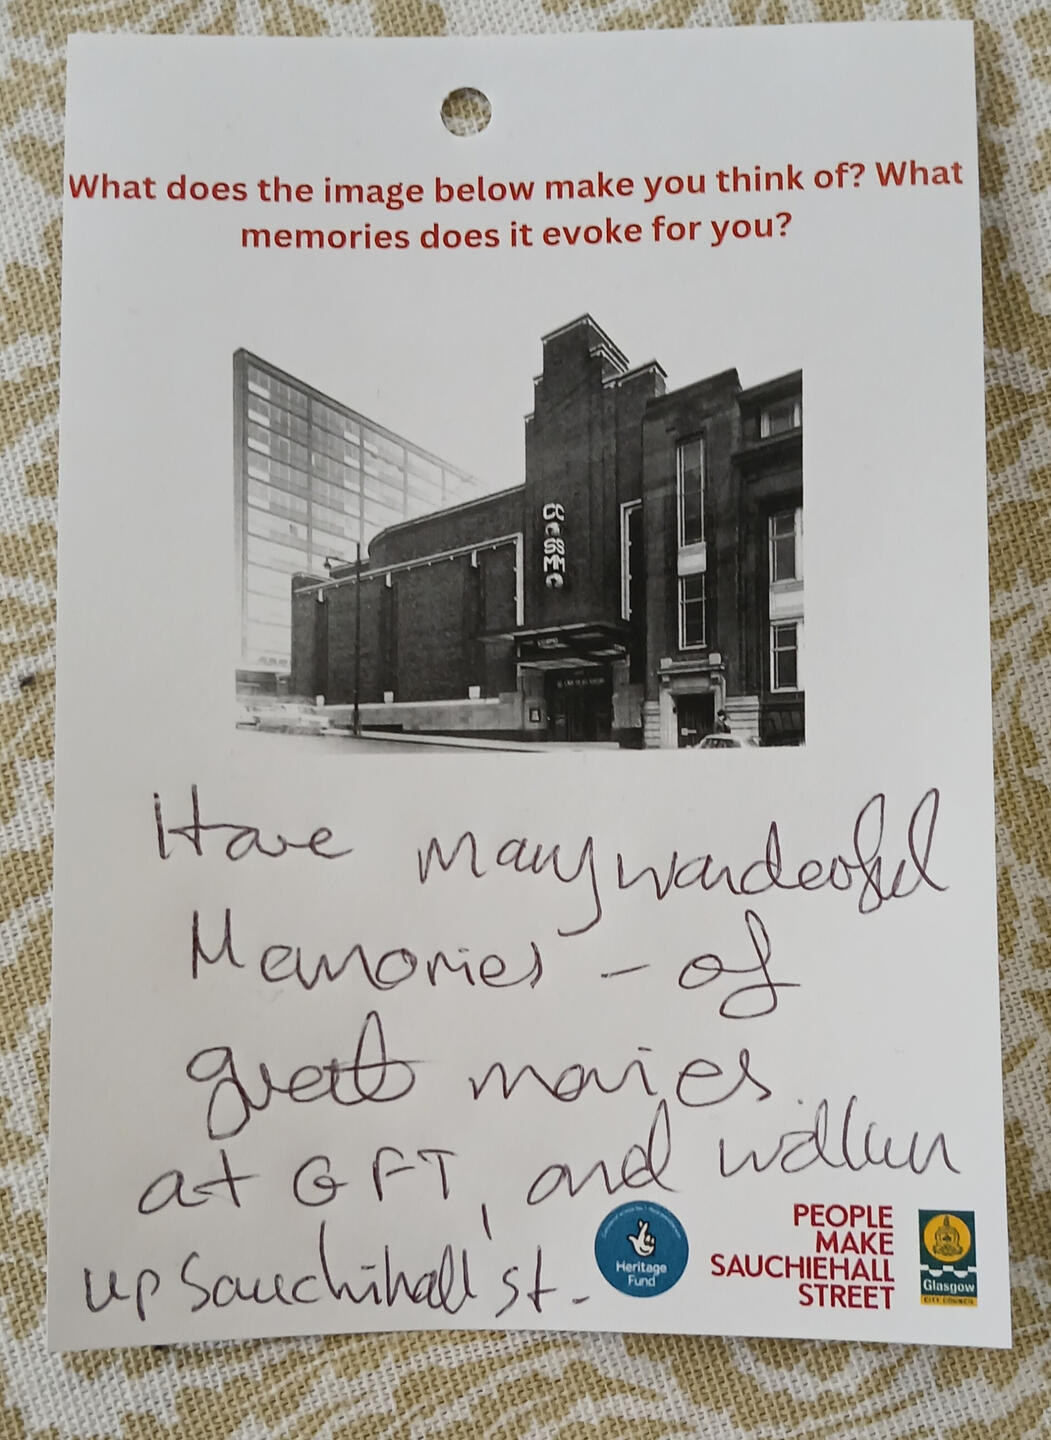 What does the image below make you think of? What
memories does it evoke for you?
COSMO
Have many wonderful
Memories - of
great movies
at GFT, and
up Sauchihall st.
Heritage
Fund
PEOPLE
MAKE
SAUCHIEHALL
STREET
Glasgow
CITY COUNCIL